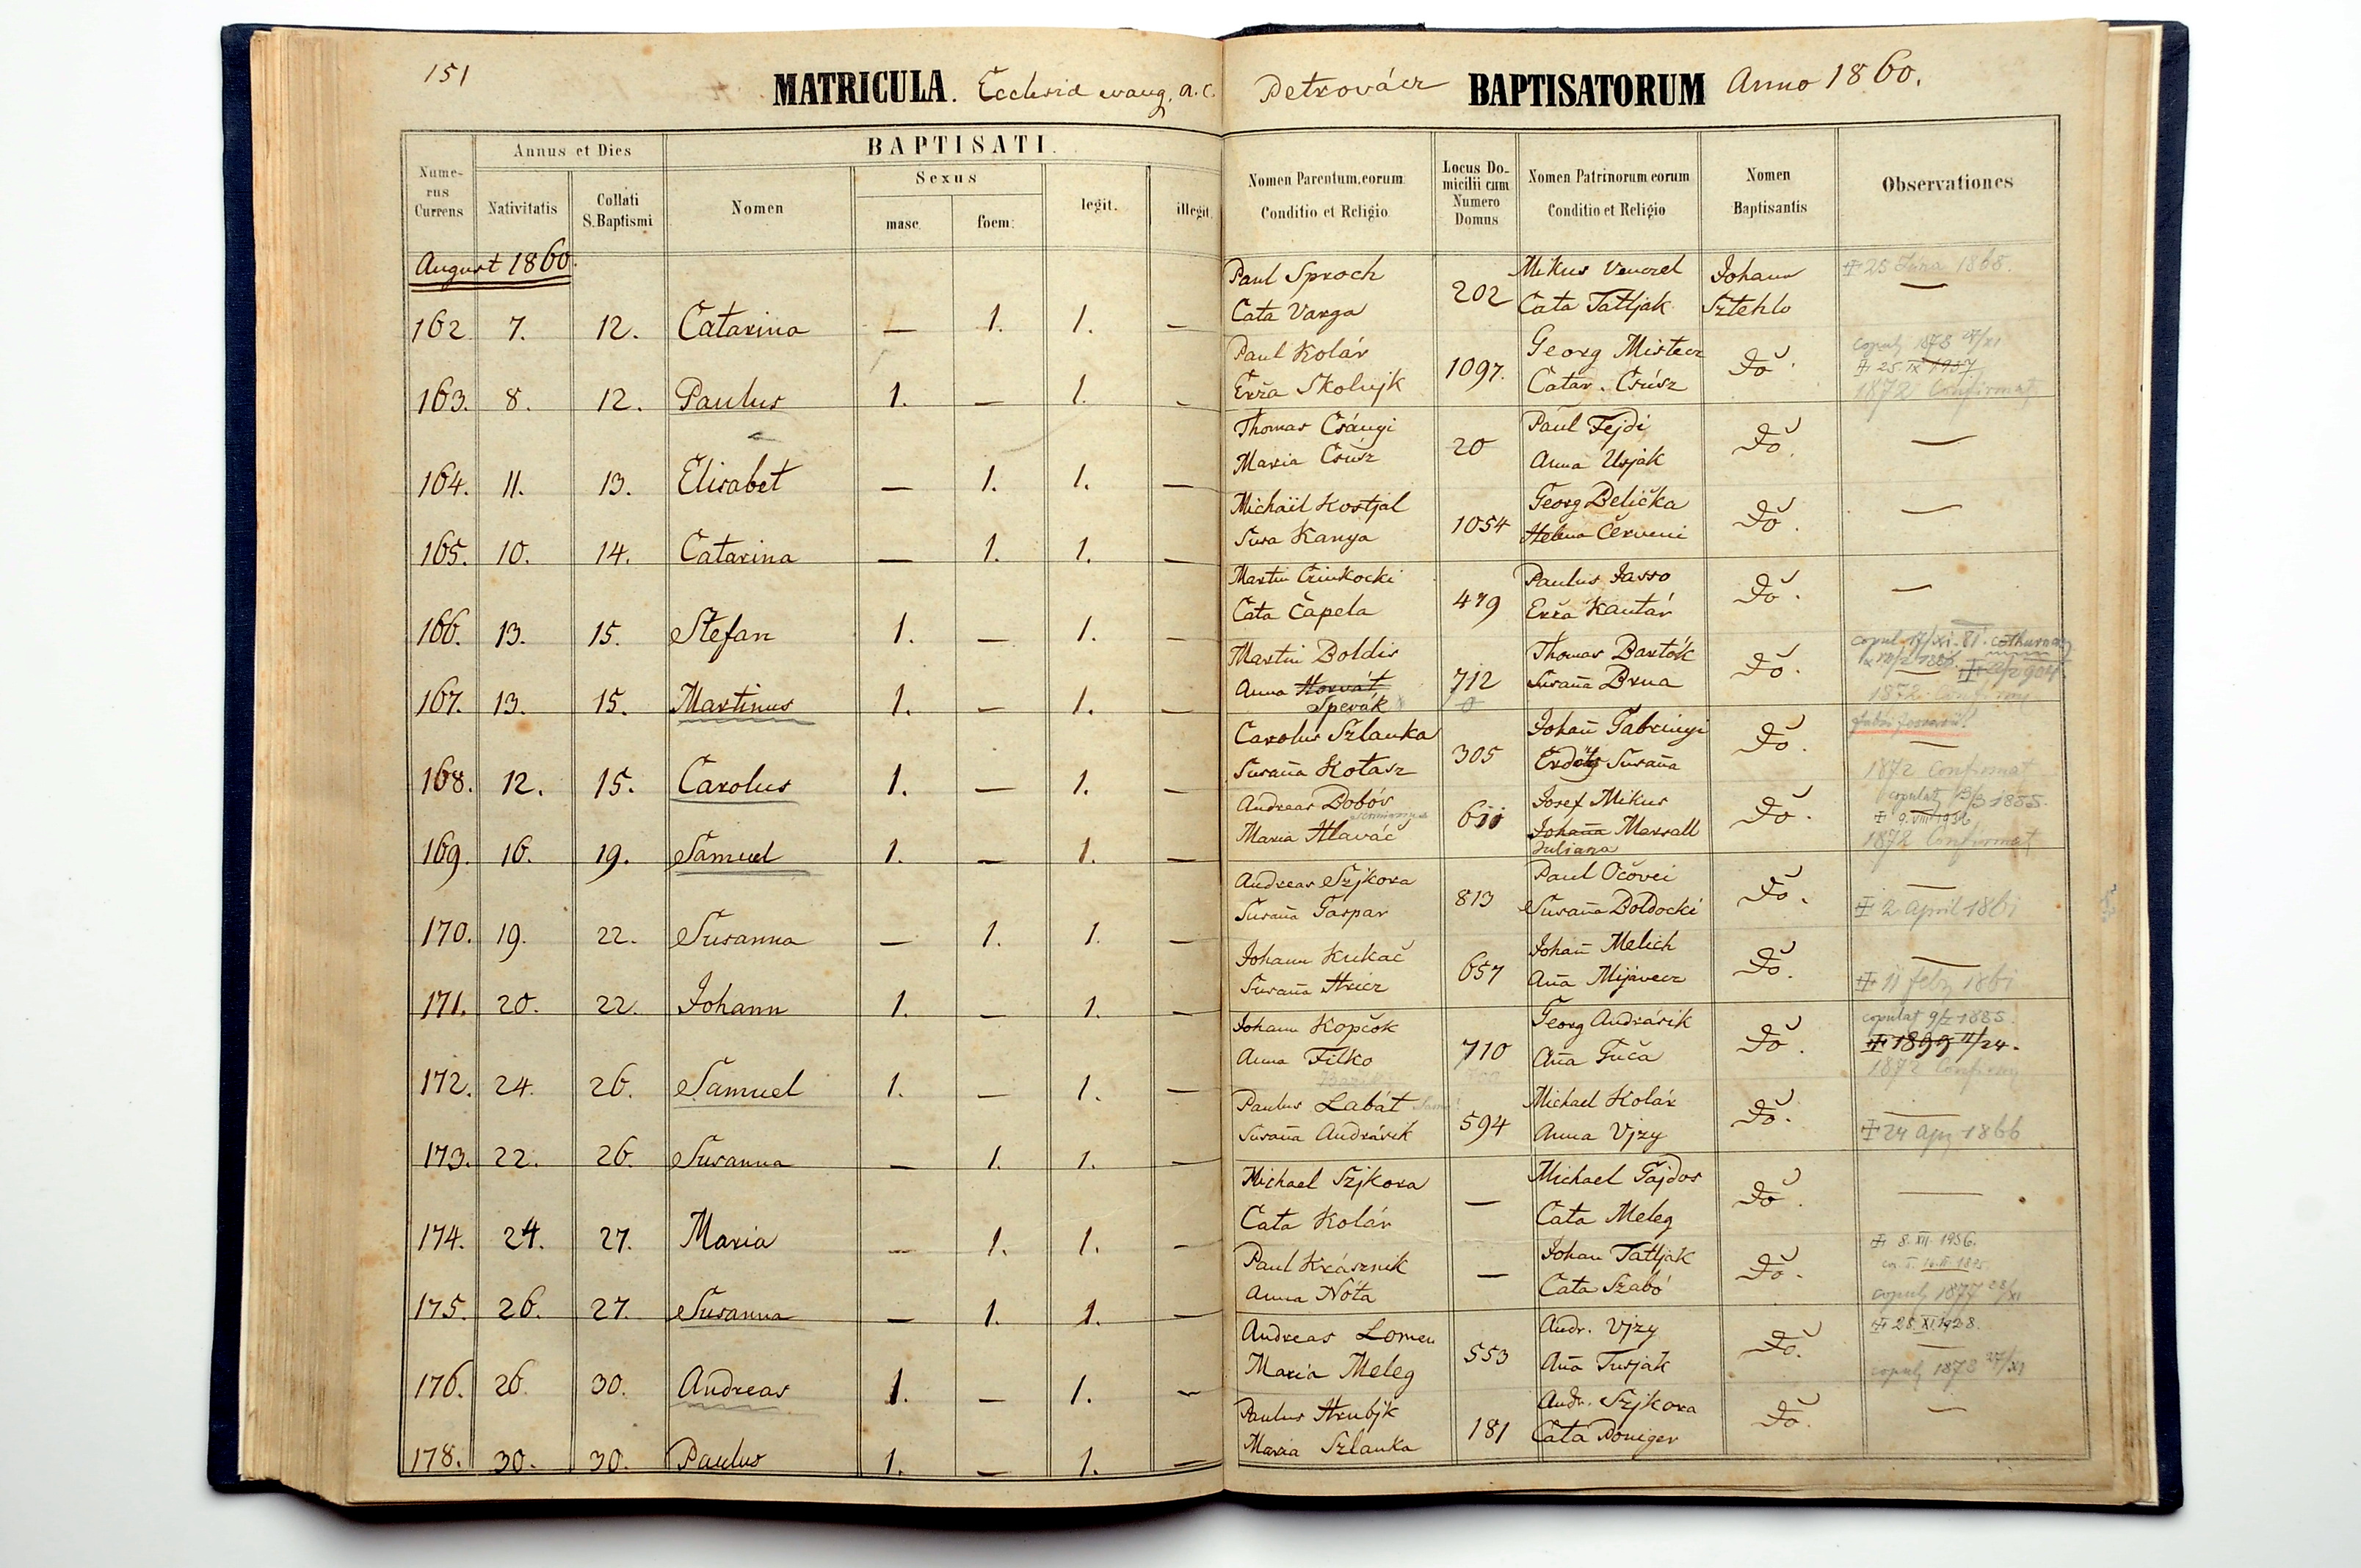 151
MATRICULA. Ecclesia evang. a.c. Petrovácz BAPTISATORUM Anno 1860.
Numerus Currens
Annus et Dies
Nativitatis
Collati S. Baptismi
BAPTISATI.
Nomen
Sexus
masc.
foem:
legit.
illegit.
Nomen Parentum, eorum
Conditio et Religio
Locus Domicilii cum Numero Domus
Nomen Patrinorum eorum
Conditio et Religio
Nomen
Baptisantis
Observationes
August 1860.
Paul Sproch Mikus Venczel Johann 25 1868.
162 7. 12. Catarina — 1. 1. — Cata Varga 202 Cata Tattjak Sztehlo —
Paul Kolár Georg Mistecz copul 1878
163. 8. 12. Paulus 1. — 1. - Erža Skolujk 1097. Catar. Csúsz Do. 25. IX 1937.
1872 Confirmat
Thomas Csányi Paul Fejdi
164. 11. 13. Elisabet — 1. 1. — Maria Csúsz 20 Anna Usják Do. —
Michail Kostjal Georg Belička
165. 10. 14. Catarina — 1. 1. — Susa Kanya 1054 Helena Červeni Do. —
Martin Czinkocki Paulus Jasso
166. 13. 15. Stefan 1. — 1. — Cata Čapela 479 Erža Kantár Do. —
Martin Boldis Thomas Bartók
167. 13. 15. Martinus 1. — 1. — Anna Horvát 712 Susaña Brna Do.
Spevák
1872 Confirm
Carolus Szlauka Johañ Gabrinyi
168. 12. 15. Carolus 1. — 1. — Susaña Kotasz 305 Susaña Do. —
1872 Confirmat
Andreas Bobór Josef Mikus copulat 1885.
169. 16. 19. Samuel 1. — 1. — Maria Hlaváč 611 Johaña Marsall Do. 9. VIII 1936
Juliana 1872 Confirmat
Andreas Szjkora Paul Očovci —
170. 19. 22. Susanna — 1. 1. — Susaña Gaspar 813 Susaña Boldocki Do. 2 April 1861
Johann Kukač Johañ Melich —
171. 20. 22. Johann 1. — 1. — Susaña Hricz 657 Aña Mijávecz Do. 11 feb 1861
Johann Kopčok Georg Andrásik copulat 9/2 1885.
172. 24. 26. Samuel 1. — 1. — Anna Filko 710 Aña Guča Do. 1899 II/24.
1872 Confirm
Paulus Labát Michael Kolár —
173. 22. 26. Susanna — 1. 1. — Susaña Andrásik 594 Anna Vjzy Do. 24 Apr 1866
Michael Szjkora Michael Gajdos
174. 24. 27. Maria — 1. 1. — Cata Kolár — Cata Meleg Do. —
Paul Krásznik Johan Tattjak 8. XII. 1936.
175. 26. 27. Susanna — 1. 1. — Anna Nóta — Cata Szabó Do. copul 1877 28/XI
Andreas Lomen Andr. Vjzy 28. XI. 1928.
176. 26. 30. Andreas 1. — 1. — Maria Meleg 553 Aña Tusjak Do. copul 1878 27/XI
Paulus Hrubjk Andr. Szjkora
178. 30. 30. Paulus 1. — 1. — Maria Szlauka 181 Cata Poniger Do. —